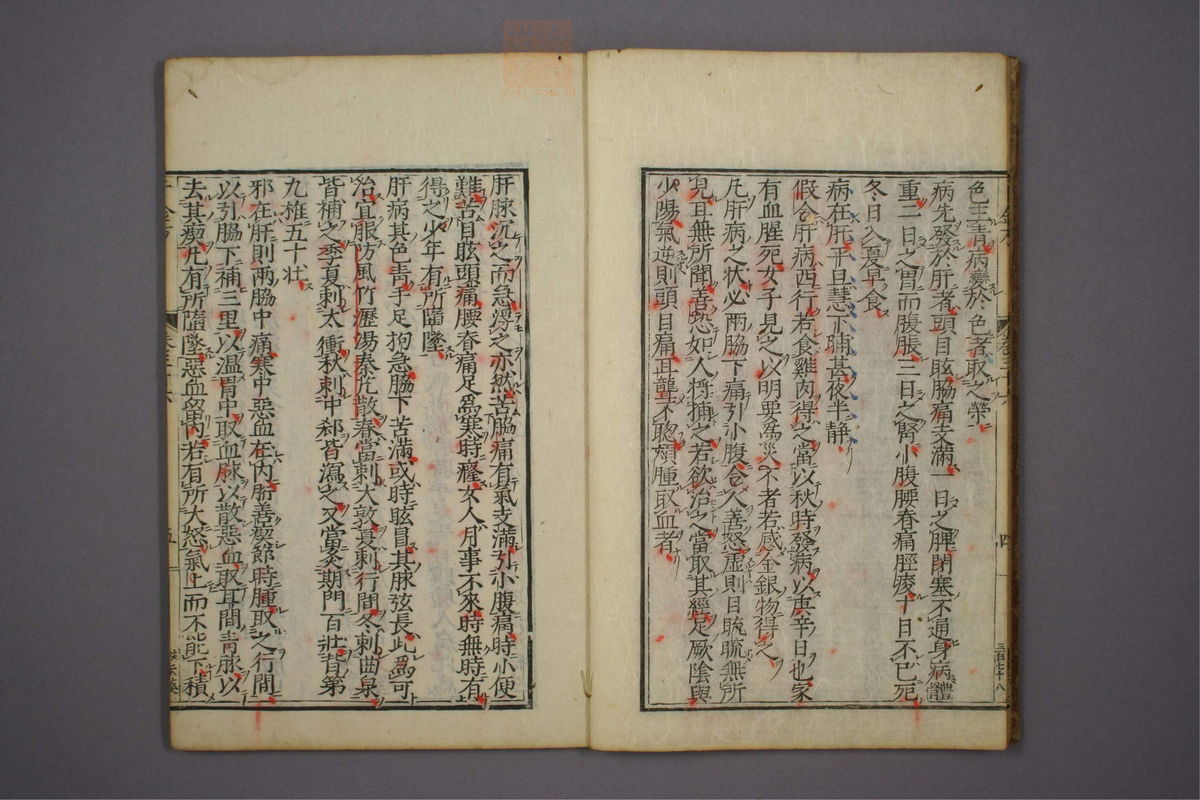 色主青病變於色者取之榮
病先發於肝者頭目眩脇痛支滿一日之脾閉塞不通身病體
重二日之胃而腹脹三日之腎小腹腰脊痛脛痠十日不已死
冬日入夏早食
病在肝平旦慧下晡甚夜半靜
假令肝病西行若食雞肉得之當以秋時發病以庚辛日也家
有血腥死女子見之以明要爲災不者若感金銀物得之
凡肝病之狀必兩脇下痛引小腹令人善怒虛則目𥆨𥆨無所
見耳無所聞善恐如人將捕之若欲治之當取其經足厥陰與
少陽氣逆則頭目痛耳聾不聰頰腫取血者
肝脉沉之而急浮之亦然苦脇痛有氣支滿引小腹痛時小便
難苦目眩頭痛腰脊痛足爲寒時癃女人月事不來時無時有
得之少年有所墮墜
肝病其色青手足拘急脇下苦滿或時眩冒其脉弦長此爲可
治宜服防風竹瀝湯秦艽散春當刺大敦夏刺行間冬刺曲泉
皆補之季夏刺太衝秋刺中郄皆瀉之又當灸期門百壯背第
九椎五十壯
邪在肝則兩脇中痛寒中惡血在内胻善瘈節時腫取之行間
以引脇下補三里以溫胃中取血脉以散惡血取耳間青脉以
去其瘈凡有所墮墜惡血留内若有所大怒氣上而不能下積
四
三百七十八
五